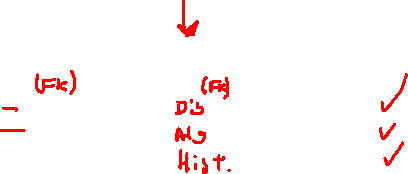 (FK) (FK)
Dis ✓
Alg ✓
Hist. ✓